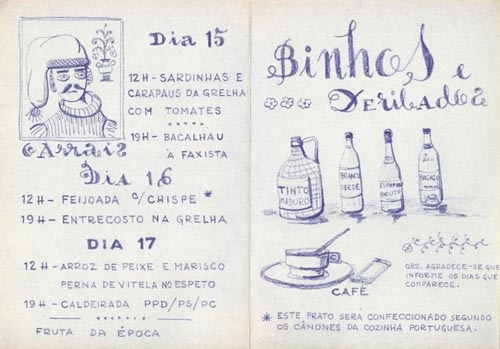 Dia 15
12H - SARDINHAS E
CARAPAUS DA GRELHA
COM TOMATES
19H - BACALHAU
À FAXISTA
Arrais
Dia 16
12H - FEIJOADA C/CHISPE *
19H - ENTRECOSTO NA GRELHA
DIA 17
12H - ARROZ DE PEIXE E MARISCO
PERNA DE VITELA NO ESPETO
19H - CALDEIRADA PPD/PS/PC
FRUTA DA ÉPOCA
BinhoS e
Deribados
TINTO
MADURO
BRANCO
VERDE
ESPUMAN
BRUTO
BAGAÇO
CAFÉ
OBS. AGRADECE-SE QUE
INFORME OS DIAS QUE
COMPARECE.
* ESTE PRATO SERÁ CONFECCIONADO SEGUNDO
OS CÂNONES DA COZINHA PORTUGUESA.